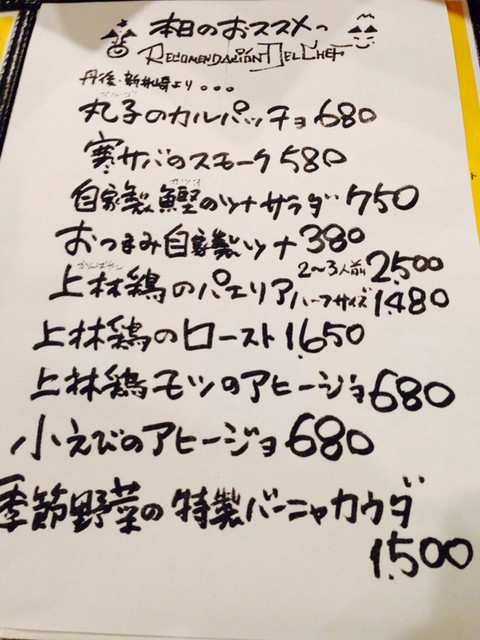 本日のおススメっ
RECOMENDACIÓN DEL CHEF
丹後・新井崎より。。。
丸子のカルパッチョ 680
寒サバのスモーク 580
自家製鰹のツナサラダ 750
おつまみ自家製ツナ 380
上林鶏のパエリア 2~3人前 2,500
ハーフサイズ 1,480
上林鶏のロースト 1,650
上林鶏モツのアヒージョ 680
小えびのアヒージョ 680
季節野菜の特製バーニャカウダ
1,500